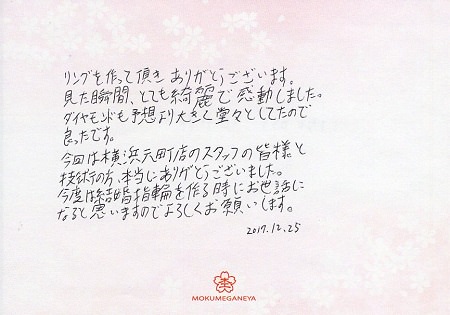 リングを作って頂きありがとうございます。
見た瞬間、とても綺麗で感動しました。
ダイヤモンドも予想より大きく堂々としてたので
良ったです。
今回は横浜元町店のスタッフの皆様と
技術の方、本当にありがとうございました。
今度は結婚指輪を作る時にお世話に
なると思いますのでよろしくお願いします。
2017.12.25
MOKUMEGANEYA